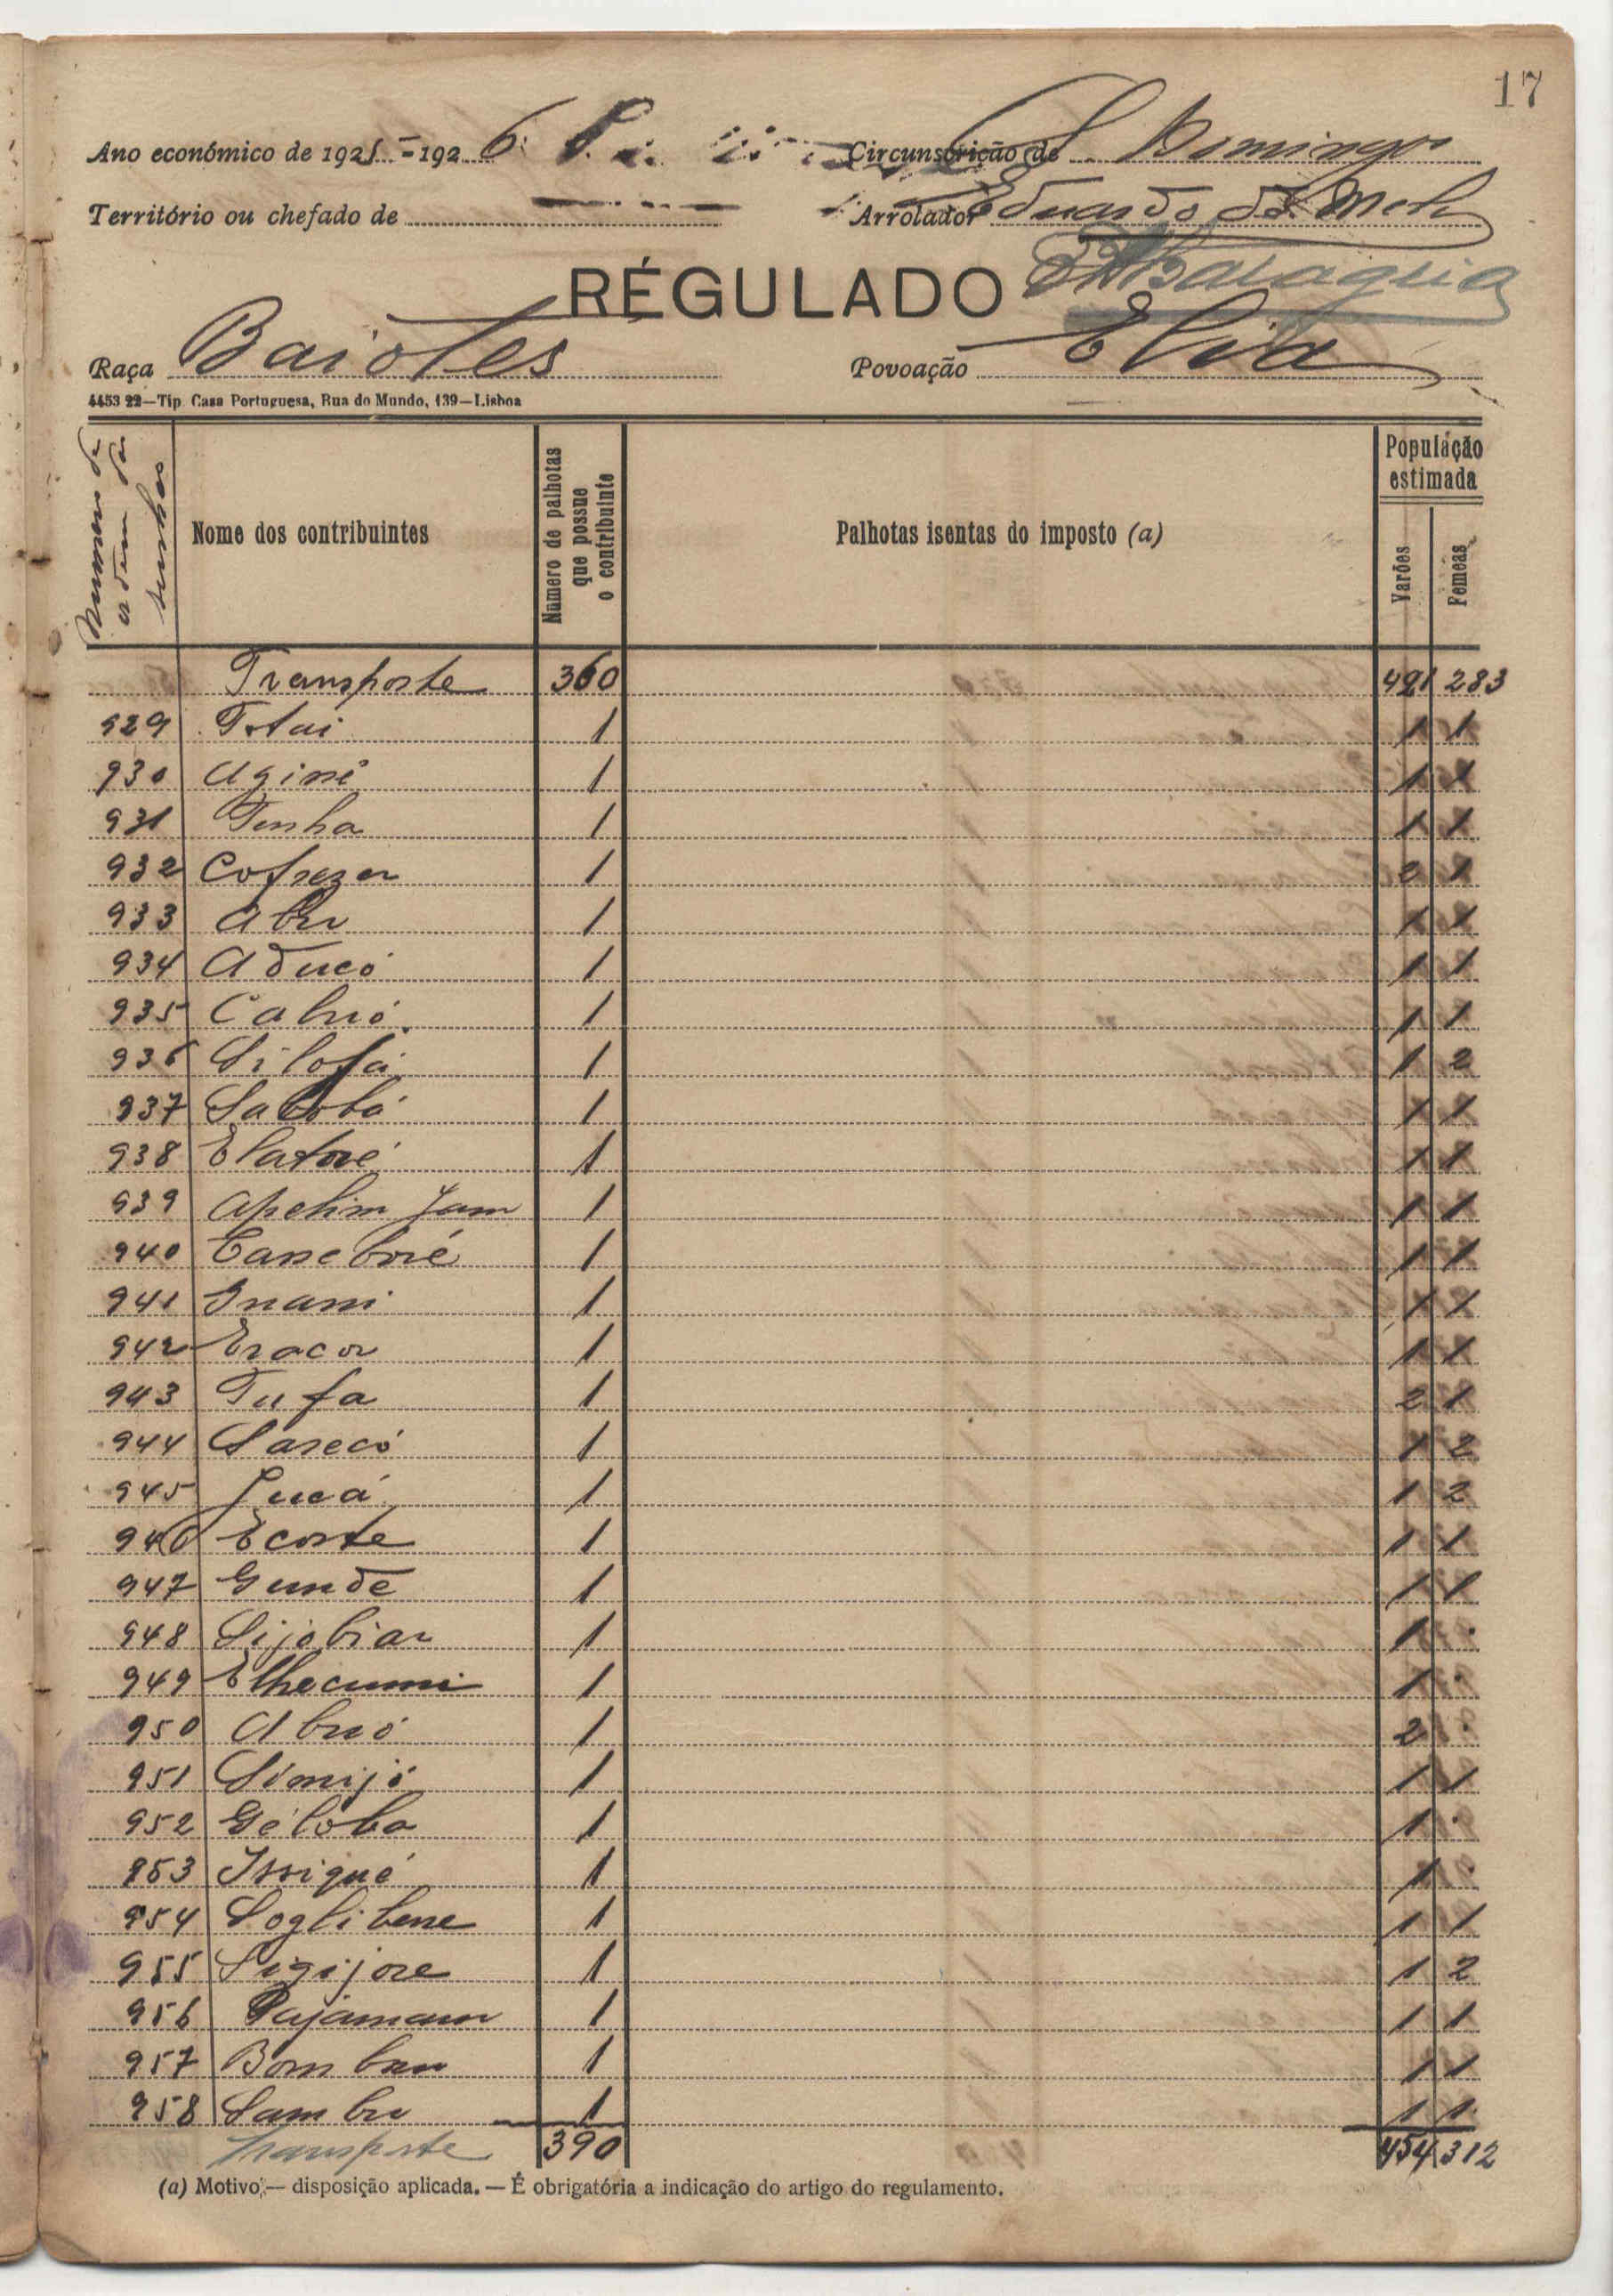 17
Ano económico de 1925-1926 Circunscrição de S. Domingos
Território ou chefado de Arrolador Eduardo de Melo
RÉGULADO
Raça Baiotes Povoação Elia
4453 22—Tip Casa Portuguesa, Rua do Mundo, 139—Lisboa
Numero de ordem das senhas
Nome dos contribuintes
Número de palhotas que possue o contribuinte
Palhotas isentas do imposto (a)
População estimada
Varões
Femeas
Transporte 360 421 283
929 Totai 1 1 1
930 Aginé 1 1 1
931 Tenha 1 1 1
932 Cofrezer 1 2 1
933 Abu 1 1 1
934 Aducó 1 1 1
935 Cabuó 1 1 1
936 Silofá 1 1 2
937 Sabobá 1 1 1
938 Elatoré 1 1 1
939 Apelim Jam 1 1 1
940 Caneboré 1 1 1
941 Inami 1 1 1
942 Eracor 1 1 1
943 Tufa 1 2 1
944 Sarecó 1 1 2
945 Jucá 1 1 2
946 Ecoste 1 1 1
947 Gunde 1 1 1
948 Sijobiar 1 1 .
949 Elhecumi 1 1 .
950 Abuó 1 2 .
951 Simijó 1 1 1
952 Gèloba 1 1 .
953 Issiqué 1 1 .
954 Soglibene 1 1 1
955 Sigijore 1 1 2
956 Pajamam 1 1 1
957 Bombau 1 1 1
958 Sambu 1 1 1
Transporte 390 454 312
(a) Motivo;— disposição aplicada. — É obrigatória a indicação do artigo do regulamento.